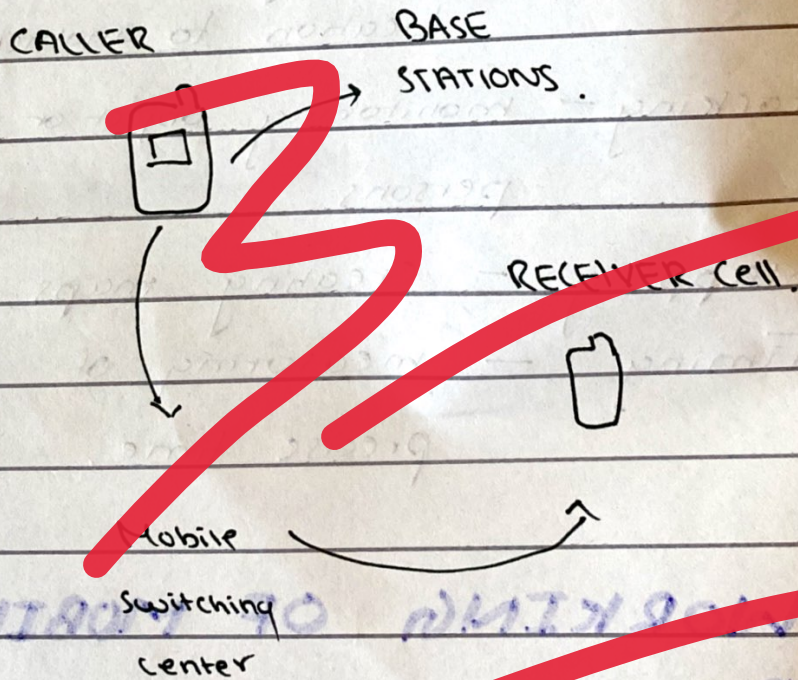 CALLER
BASE
STATIONS.
RECEIVER Cell.
Mobile
Switching
Center